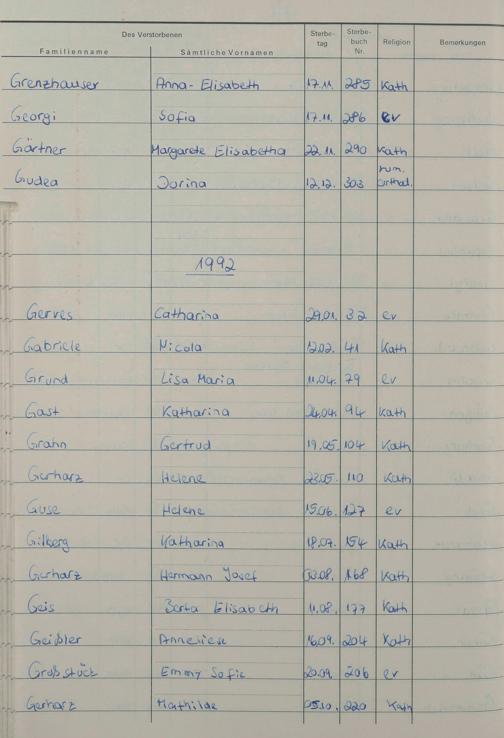 Des Verstorbenen Sterbe- Sterbe-
tag buch Religion Bemerkungen
Familienname Sämtliche Vornamen Nr.
Grenzhäuser Anna-Elisabeth 17.11. 285 Kath
Georgi Sofia 17.11. 286 ev
Gärtner Margarete Elisabetha 22.11. 290 Kath
Gudea Dorina 12.12. 303 rum.
orthol.
1992
Gerves Catharina 29.01. 32 ev
Gabriele Nicola 12.02. 41 Kath
Grund Lisa Maria 11.04. 79 ev
Gast Katharina 24.04. 94 Kath
Grahn Gertrud 19.05. 104 Kath
Gerharz Helene 23.05. 110 Kath
Guse Helene 15.06. 127 ev
Gilberg Katharina 18.07. 154 Kath
Gerharz Hermann Josef 168 Kath
Geis Berta Elisabeth 11.08. 177 Kath
Geißler Anneliese 16.09. 204 Kath
Großstück Emmy Sofie 20.09. 206 ev
Gerharz Mathilde 05.10. 220 Kath